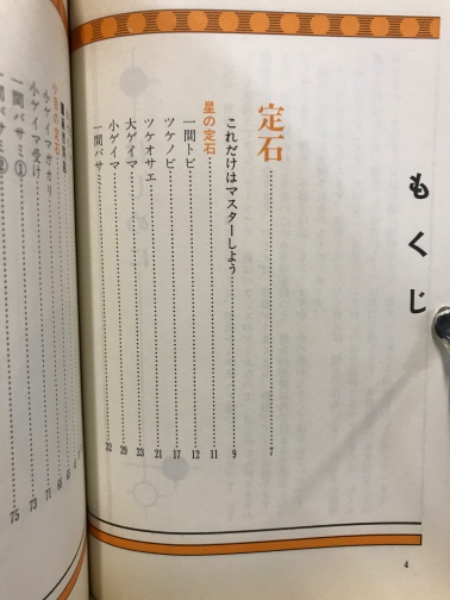 もくじ
定石 7
これだけはマスターしよう 9
星の定石 11
一間トビ 12
ツケノビ 17
ツケオサエ 21
大ゲイマ 23
小ゲイマ 29
一間バサミ 32
4
小ゲイマガカリ 71
小ゲイマ受け 73
一間バサミ① 75
一間バサミ②